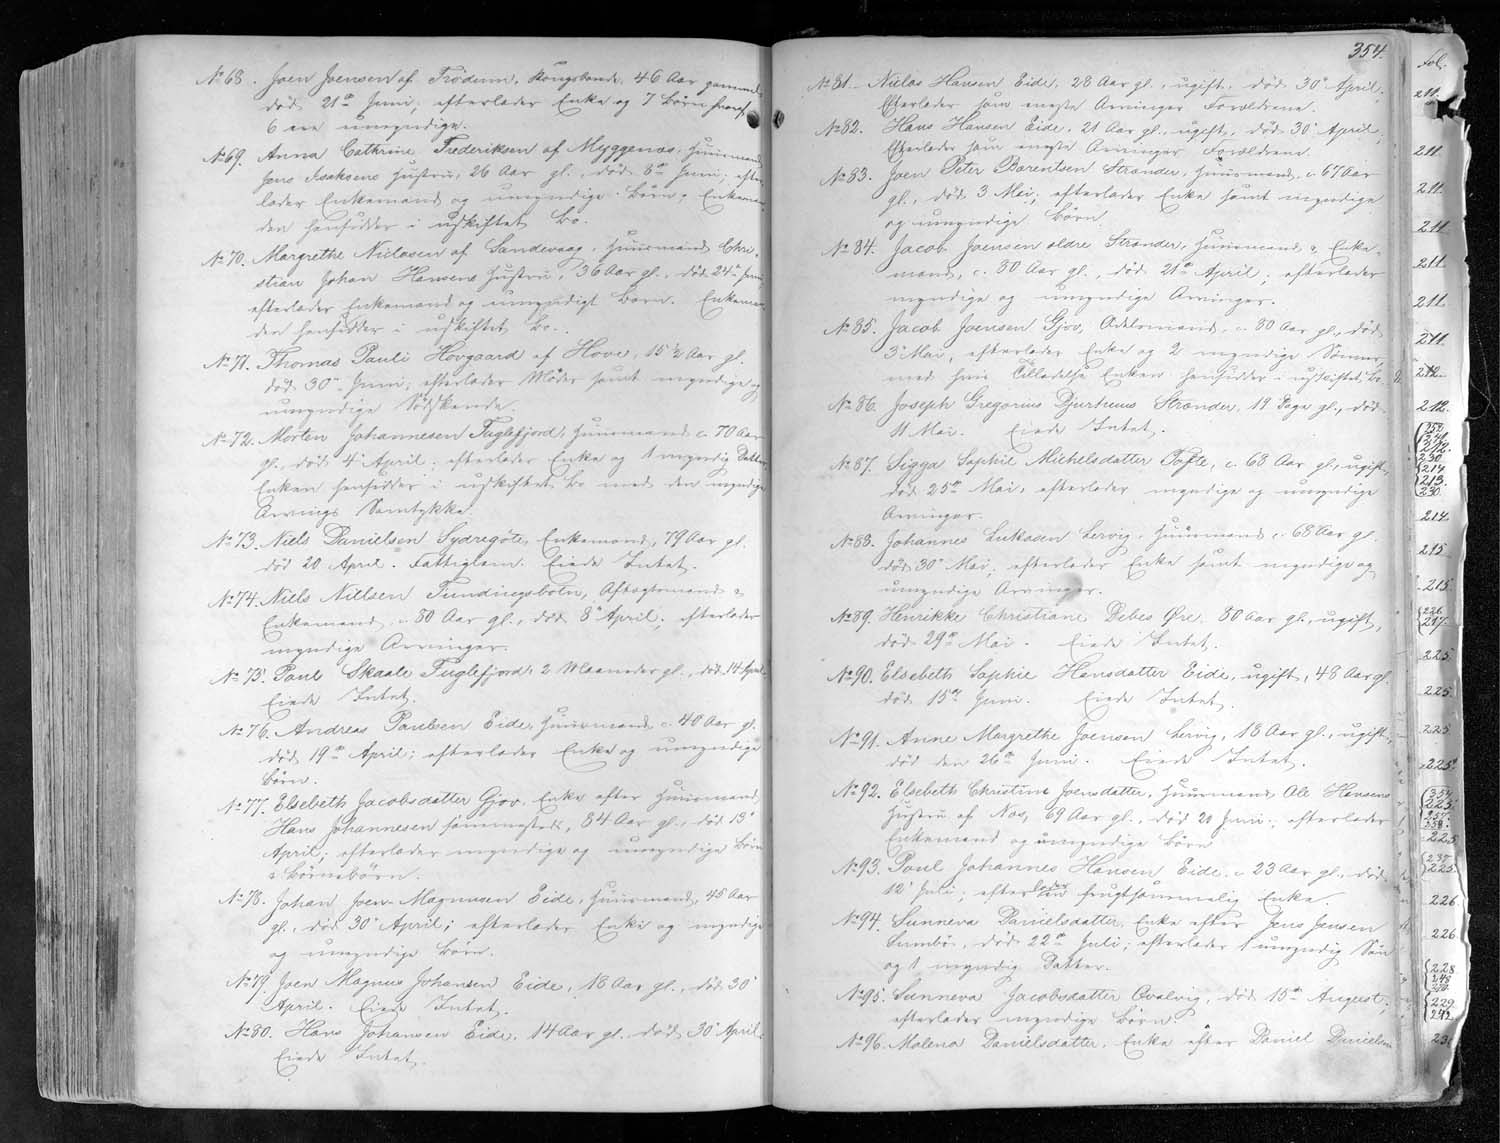 No 68. Joen Joensen af Trödum, Kongsbonde, 46 Aar gammel
död 21de Juni; efterlader Enke og 7 Börn hvoraf
6 ere umyndige.
No 69. Anna Cathrine Frederiksen af Myggenæs, Huusmand
Jens Isaksens Hustru, 26 Aar gl., död 8de Juni; efter-
lader Enkemand og umyndige Börn; Enkeman-
den hensidder i uskiftet Bo.
No 70. Margrethe Niclasen af Sandevaag, Huusmand Chri-
stian Johan Hansens Hustru, 36 Aar gl., död 24de Juni
efterlader Enkemand og umyndigt Barn. Enkeman-
den hensidder i uskiftet Bo.
No 71. Thomas Pauli Hovgaard af Hove, 15 1/2 Aar gl.
död 30te Juni; efterlader Moder samt myndige og
umyndige Södskende.
No 72. Morten Johannesen Fuglefjord, Huusmand c. 70 Aar
gl., död 4de April; efterlader Enke og 1 myndig Datter.
Enken hensidder i uskiftet Bo med den myndige
Arvings Samtykke.
No 73. Niels Danielsen Sydregöte, Enkemand, 79 Aar gl.
död 20 April. Fattiglem. Eiede Intet.
No 74. Niels Nielsen Funding​sbotn, Aftægtsmand &
Enkemand, c. 80 Aar gl., död 8de April; efterlader
myndige Arvinger.
No 75. Poul Skaale Fuglefjord, 2 Maaneder gl., död 14 April
Eiede Intet.
No 76. Andreas Paulsen Eide, Huusmand c. 40 Aar gl.
död 19de April; efterlader Enke og umyndige
Börn.
No 77. Elsebeth Jacobsdatter Gjov, Enke efter Huusmand
Hans Johannesen sammesteds, 84 Aar gl., död 19de
April; efterlader myndige og umyndige Börn
& Börnebörn.
No 78. Johan Joen-Magnusen Eide, Huusmand, 45 Aar
gl., död 30te April; efterlader Enke og myndige
og umyndige Börn.
No 79. Joen Magnus Johansen Eide, 18 Aar gl., död 30te
April. Eiede Intet.
No 80. Hans Johansen Eide, 14 Aar gl. död 30te April.
Eiede Intet.
354.
No 81. Niclas Hansen Eide, 28 Aar gl., ugift, död 30te April;
Efterlader som eneste Arvinger Forældrene.
No 82. Hans Hansen Eide, 21 Aar gl., ugift, död 30te April;
Efterlader som eneste Arvinger Forældrene.
No 83. Joen Peter Barentsen Strander, Huusmand, c. 67 Aar
gl., död 3 Mai; efterlader Enke samt myndige
og umyndige Börn.
No 84. Jacob Joensen ældre Strander, Huusmand & Enke-
mand, c. 80 Aar gl., död 21de April; efterlader
myndige og umyndige Arvinger.
No 85. Jacob Joensen Gjov, Odelsmand, c. 80 Aar gl., död
3de Mai, efterlader Enke og 2 myndige Sönner,
med hvis Tilladelse Enken hensidder i uskiftet Bo.
No 86. Joseph Gregorius Djurhuus Strander, 19 Dage gl., död
11 Mai. Eiede Intet.
No 87. Sigga Sophie Michelsdatter Tofte, c. 68 Aar gl., ugift,
död 25de Mai, efterlader myndige og umyndige
Arvinger.
No 88. Johannes Lukasen Lervig, Huusmand c. 68 Aar gl.
död 30te Mai; efterlader Enke samt myndige og
umyndige Arvinger.
No 89. Henrikke Christiane Debes Øre, 80 Aar gl., ugift,
död 29de Mai. Eiede Intet.
No 90. Elsebeth Sophie Hansdatter Eide, ugift, 48 Aar gl.
död 15de Juni. Eiede Intet.
No 91. Anne Margrethe Joensen Lervig, 18 Aar gl., ugift,
död den 26de Juni. Eiede Intet.
No 92. Elsebeth Christine Joensdatter, Huusmand Ole Hansens
Hustru af Næs, 69 Aar gl., död 20 Juni; efterlader
Enkemand og umyndige Börn
No 93. Poul Johannes Hansen Eide, c. 23 Aar gl., död
12te Juli; efterlader frugtsommelig Enke.
No 94. Sunneva Danielsdatter, Enke efter Jens Jensen
Sumbö, död 22de Juli; efterlader 1 umyndig Sön
og 1 myndig Datter.
No 95. Sunneva Jacobsdatter Qvalvig, död 15de August;
efterlader myndige Börn.
No 96. Malena Danielsdatter, Enke efter Daniel Danielsen
fol.
211.
211.
211.
211.
211.
211.
211.
212.
212.
212.
230.
214
213.
230
214.
215
215.
226
217.
225.
225.
225.
225.
354
225.
357
358.
225
237
225.
226.
226
228
229
242.